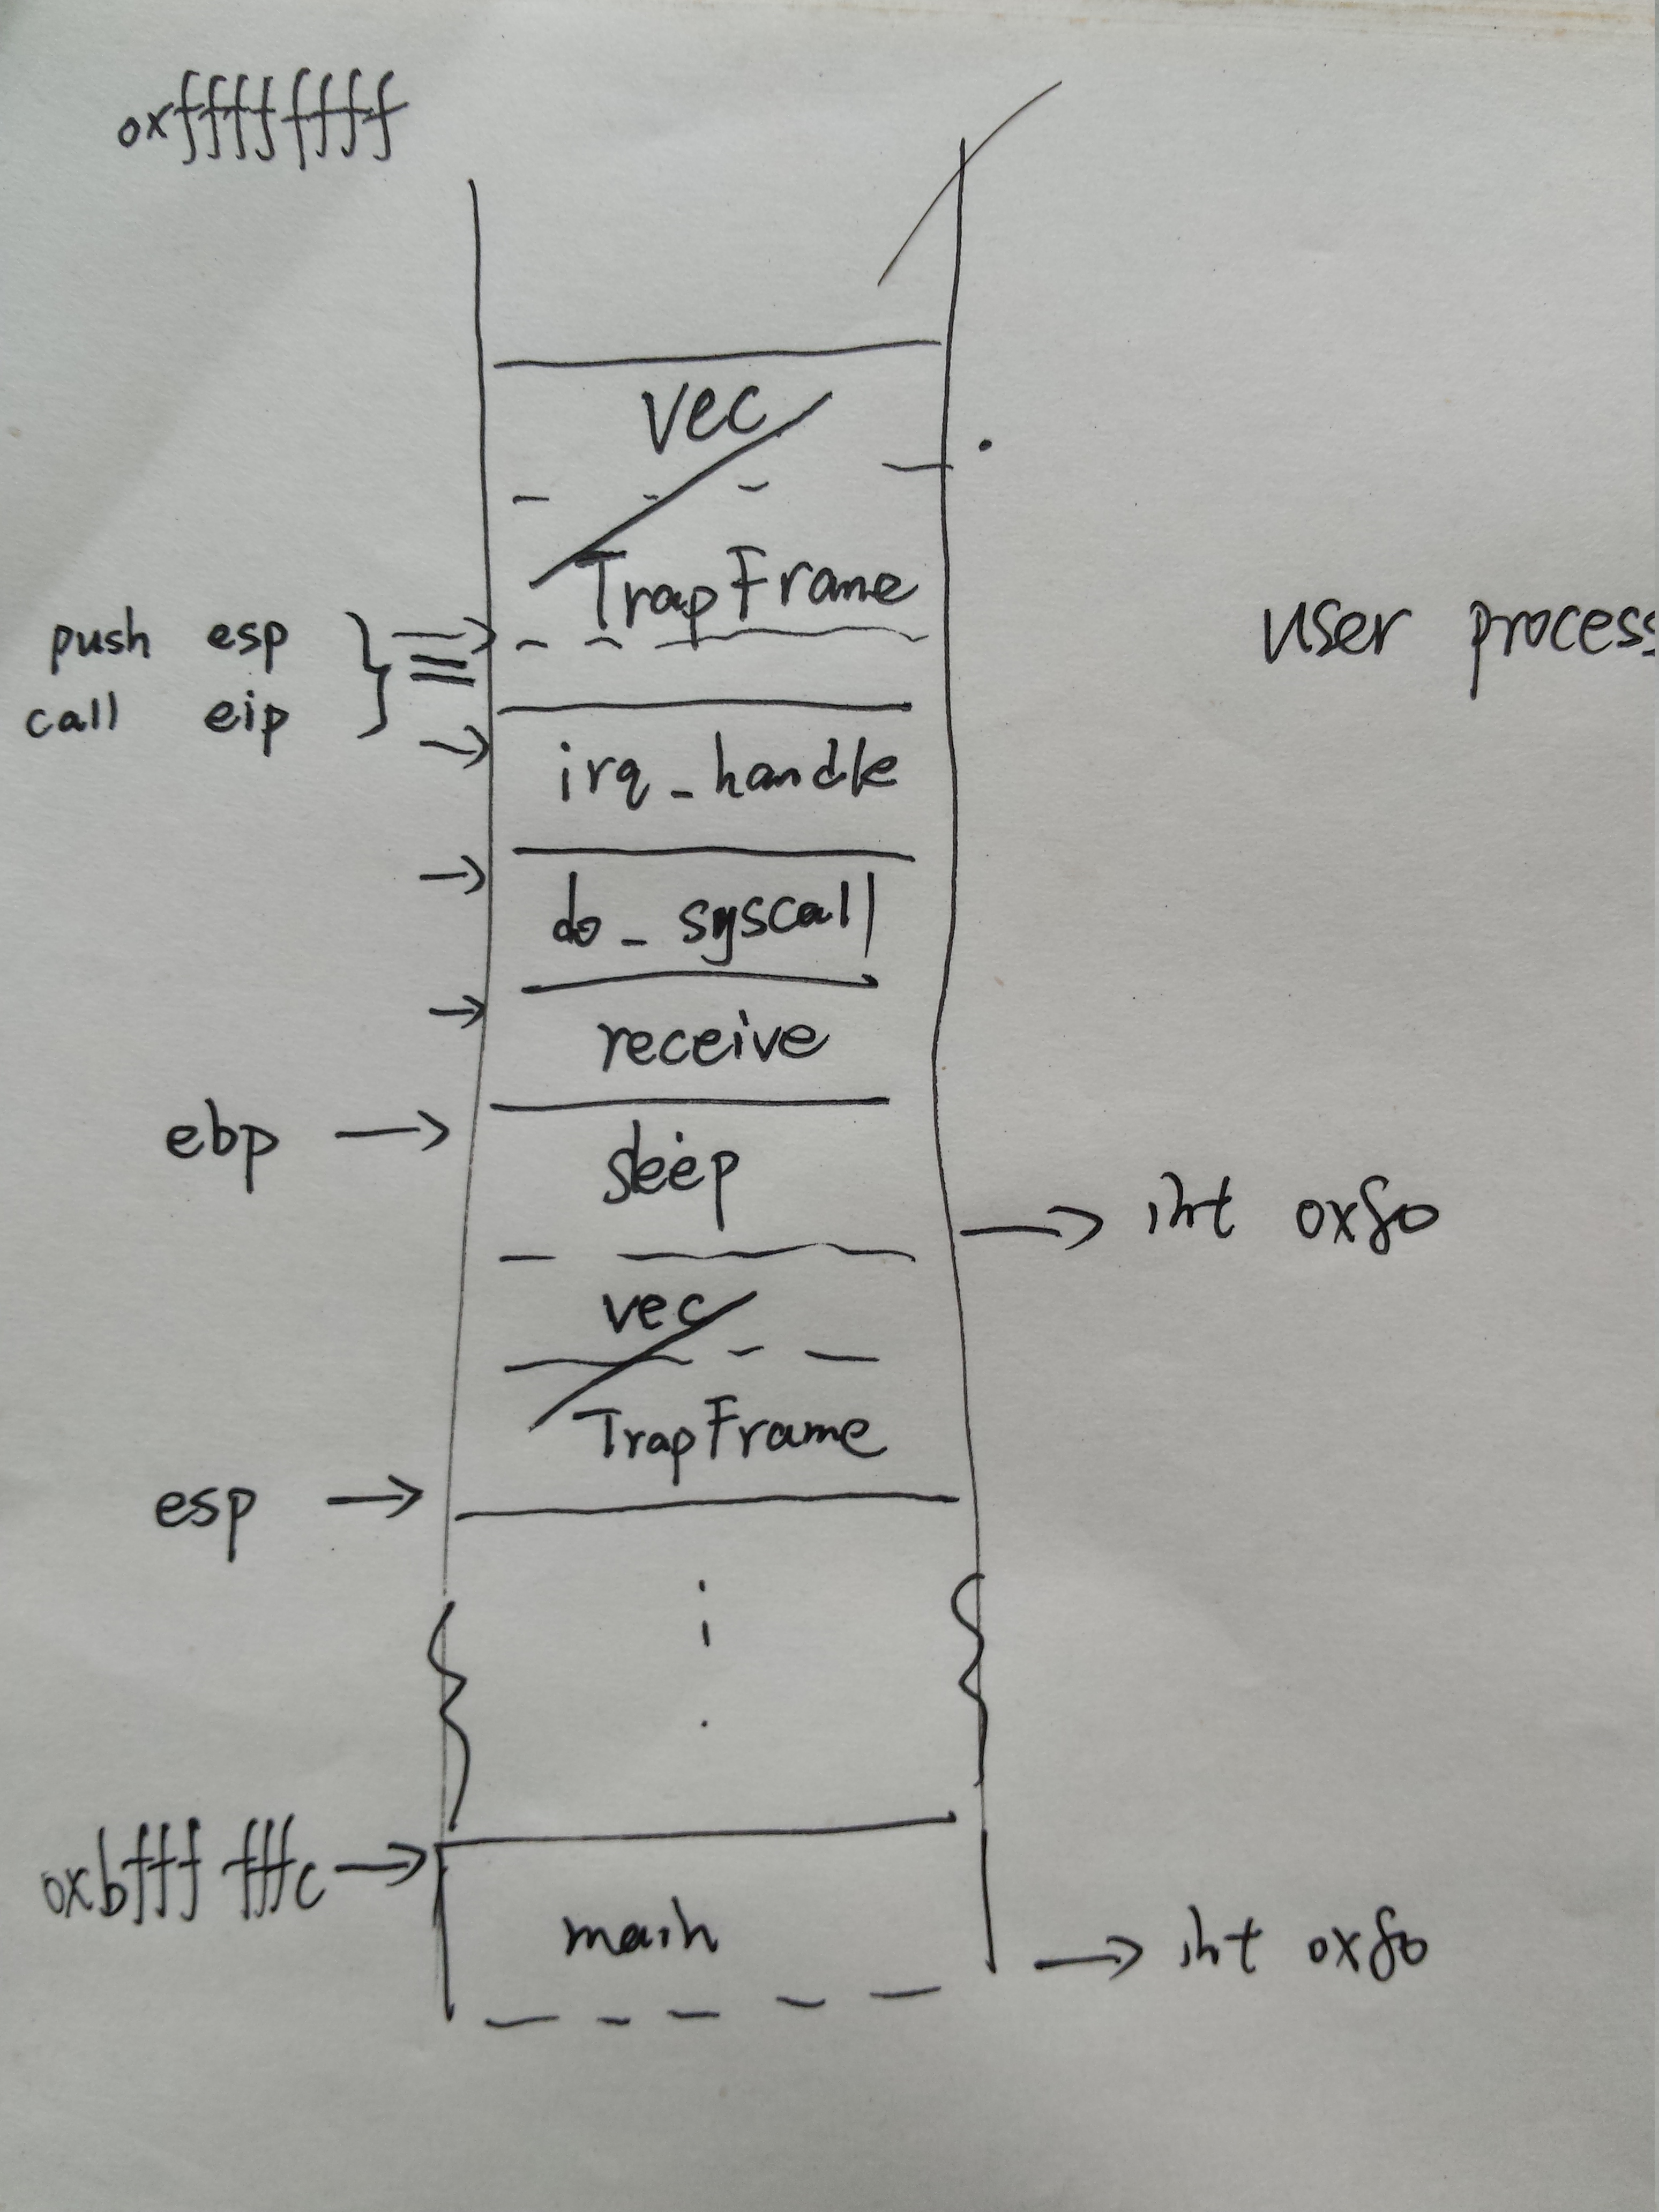 0xffffffff
vec
TrapFrame
push esp
call eip
user process
irq_handle
do_syscall
receive
ebp
sleep
int 0x80
vec
TrapFrame
esp
0xbffffffc
main
int 0x80